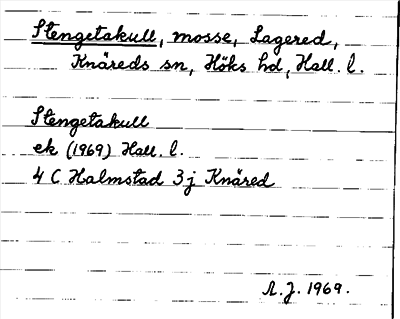 Stengetakull, mosse, Lagered,
Knäreds sn, Höks hd, Hall. l.
Stengetakull
ek (1969) Hall. l.
4 C Halmstad 3 j Knäred
A. J. 1969.